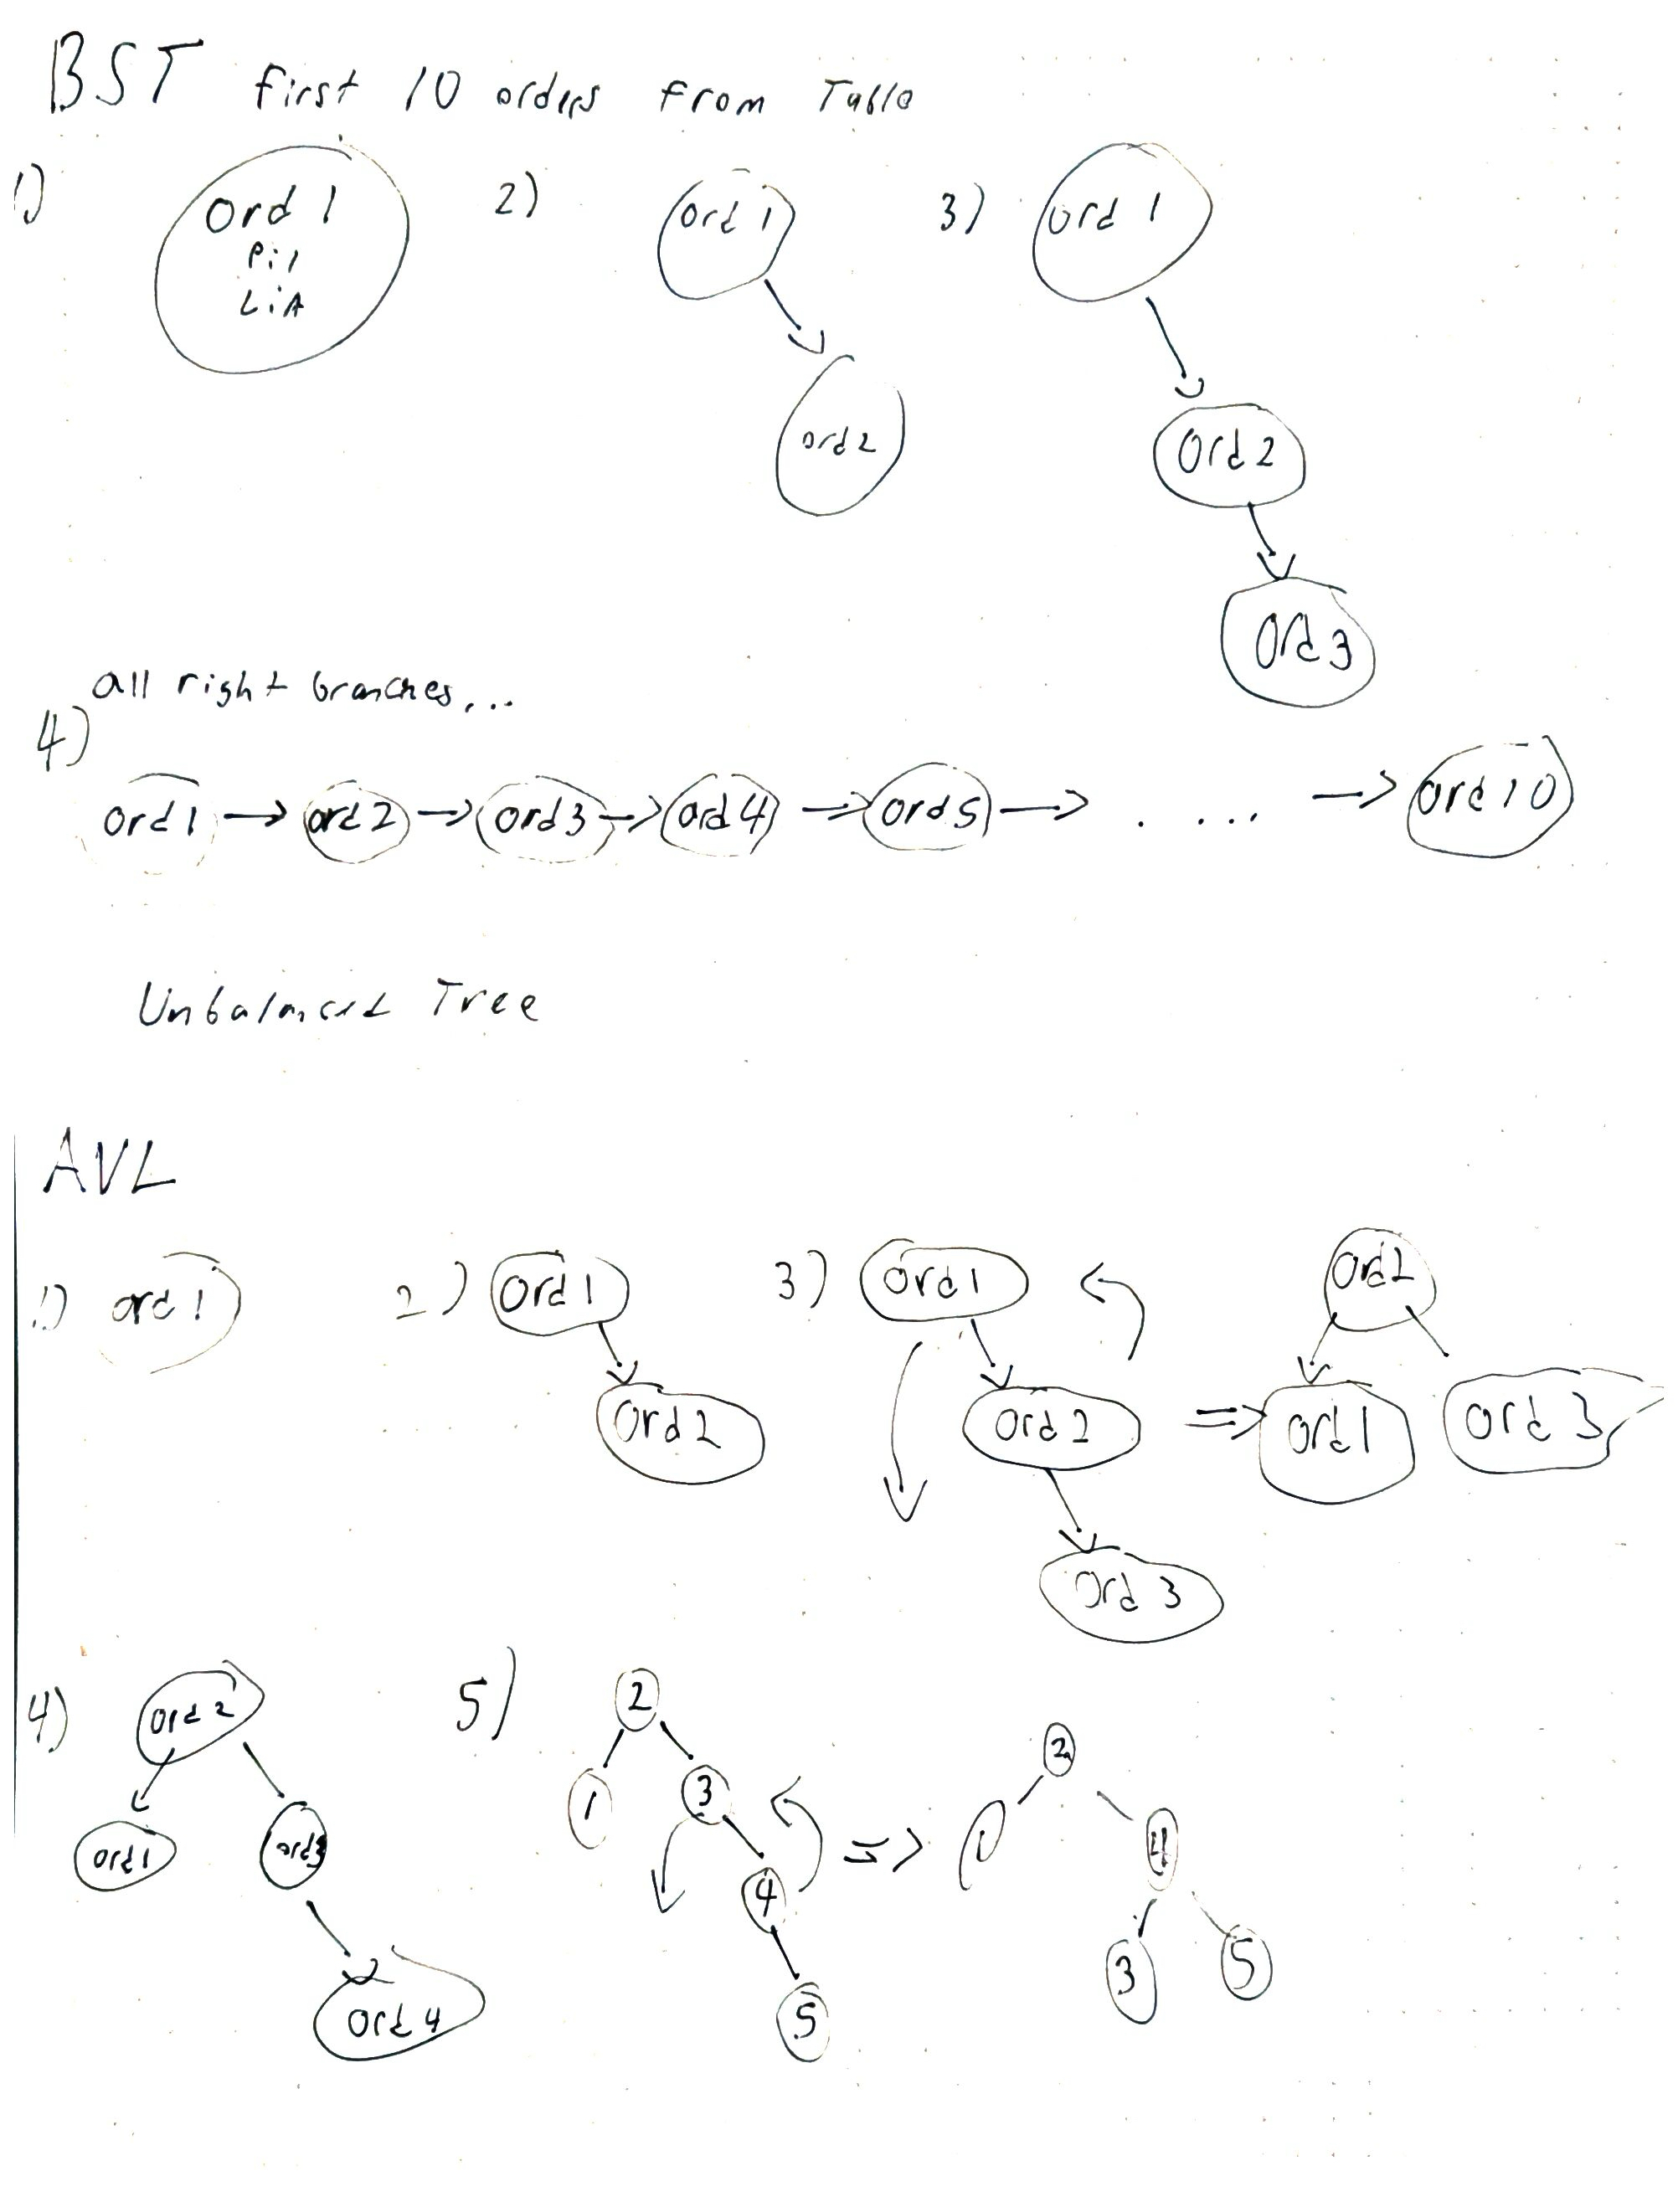 BST First 10 orders From Table
1) 2) 3)
Ord 1
Pil
LiA
Ord 1
Ord 2
Ord 1
Ord 2
Ord 3
All right branches...
4)
Ord 1 → Ord 2 → Ord 3 → Ord 4 → Ord 5 → . ... → Ord 10
Unbalanced Tree
AVL
1) Ord 1
2) Ord 1
Ord 2
3) Ord 1
Ord 2
Ord 3
⇒
Ord 2
Ord 1 Ord 3
4) Ord 2
Ord 1 Ord 3
Ord 4
5) 2
1 3
4
5
=>
2
1 4
3 5